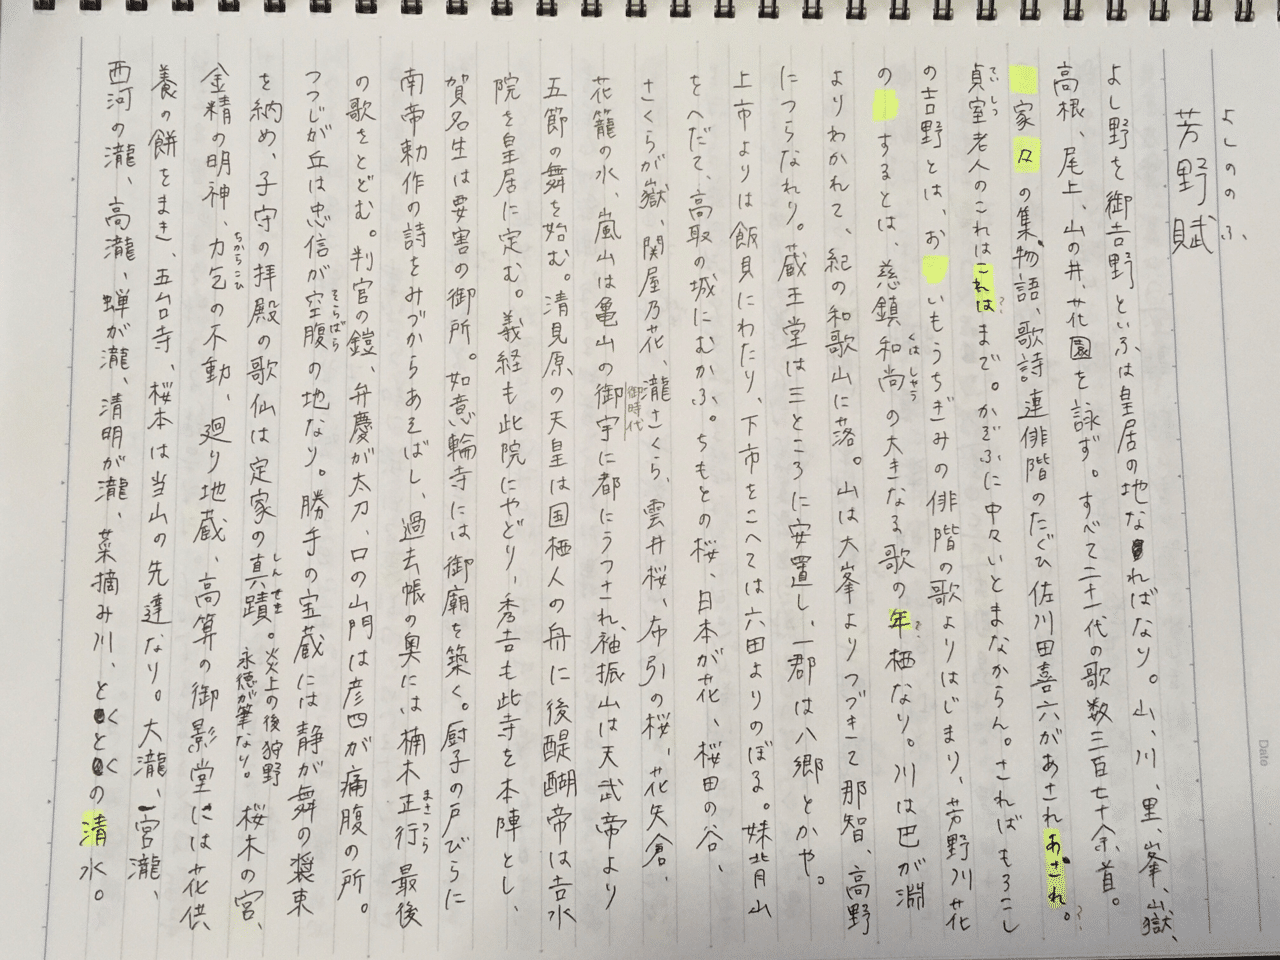 よしののふ
芳野賦
よし野を御吉野といふは皇居の地なればなり。山、川、里、峯、嶽、
高根、尾上、山の井、花園を詠ず。すべて二十一代の歌数三百七十余首。
家々の集、物語、歌詩連俳階のたぐひ佐川田喜六があされあされ。?
貞室老人のこれはこれはまで。かぞふに中々いとまなからん。さればもろこし
ていしつ ?
の吉野とは、お いもうちぎみの俳階の歌よりはじまり、芳野川花
の するとは、慈鎮和尚の大きなる歌の年栖なり。川は巴が淵
くはしやう ?
よりわかれて、紀の和歌山に落。山は大峯よりつづきて那智、高野
につらなれり。蔵王堂は三ところに安置し、一郡は八郷とかや。
上市よりは飯貝にわたり、下市をこへては六田よりのぼる。妹背山
をへだて、高取の城にむかふ。ちもとの桜、日本が花、桜田の谷、
さくらが嶽、関屋乃花、瀧さくら、雲井桜、布引の桜、花矢倉、
花籠の水、嵐山は亀山の御宇に都にうつされ、袖振山は天武帝より
御時代
五節の舞を始む。清見原の天皇は国栖人の舟に後醍醐帝は吉水
院を皇居に定む。義経も此院にやどり、秀吉も此寺を本陣とし、
賀名生は要害の御所。如意輪寺には御廟を築く。厨子の戸びらに
南帝勅作の詩をみづからあそばし、過去帳の奥には楠木正行最後
まさつら
の歌をとどむ。判官の鎧、弁慶が太刀、口の山門は彦四が痛腹の所。
つつじが丘は忠信が空腹の地なり。勝手の宝蔵には静が舞の装束
そらばら
を納め、子守の拝殿の歌仙は定家の真蹟。炎上の後狩野
永徳が筆なり。桜木の宮、
しんせき
金精の明神、力乞の不動、廻り地蔵、高算の御影堂には花供
ちからこひ
養の餅をまき、五台寺、桜本は当山の先達なり。大瀧、一宮瀧、
西河の瀧、高瀧、蝉が瀧、清明が瀧、菜摘み川、とくとくの清水。
Date